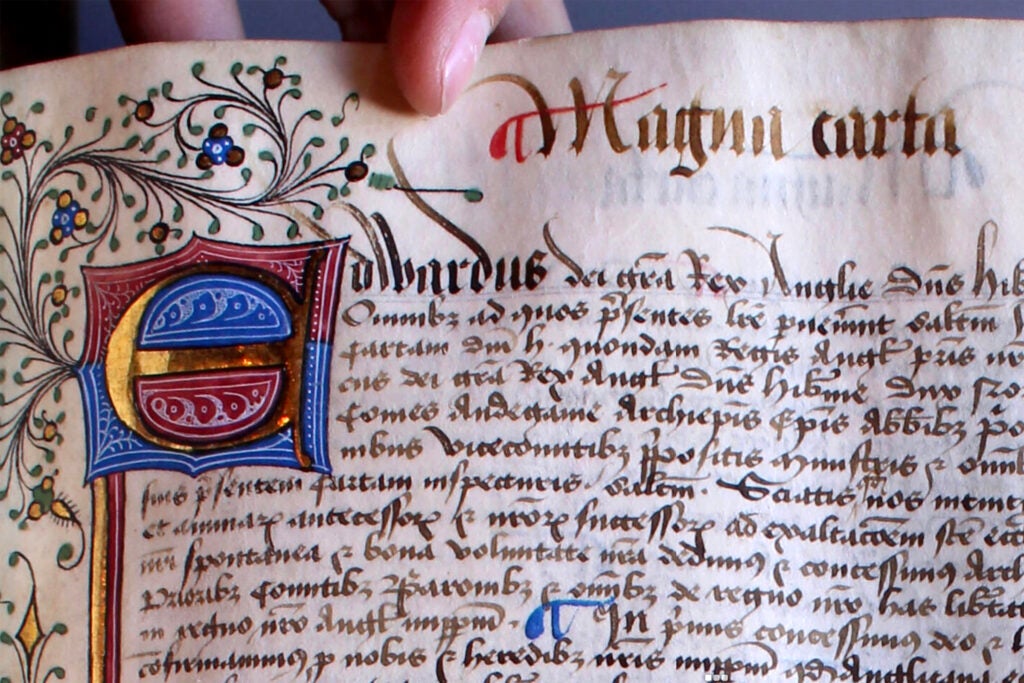 Magna carta
Edwardus dei gr̄a Rex Anglie Dn̄s hib
Omnibȝ ad quos p̄sentes lr̄e puen̄int salt̄m
Cartam Dn̄i h. quondam Regis Angl̄ pr̄is nr̄i
cus dei gr̄a Rex Angl̄ Dn̄s hib̄nie Dux
Comes Andegauie Archiep̄is Ep̄is Abb̄ibȝ
nibus vicecomitibȝ p̄positis ministris ⁊ omībȝ
suis p̄sentem Cartam inspecturis salt̄m. Sciatis qd̄ nos
et animaꝝ antecessoꝝ ⁊ nr̄oꝝ successoꝝ ad exaltac̄oem sc̄e
nr̄i spontanea ⁊ bona voluntate nr̄a dedimus ⁊ concessimus Arch
Prioribȝ Comitibȝ Baronibȝ ⁊ om̄ibȝ de regno nr̄o has lib̄tat
in regno nr̄o Angl̄ impp̄m. In p̄mis concessimus deo ⁊
cōfirmauimus p nobis ⁊ heredibȝ nr̄is impp̄m qd̄ Anglicana